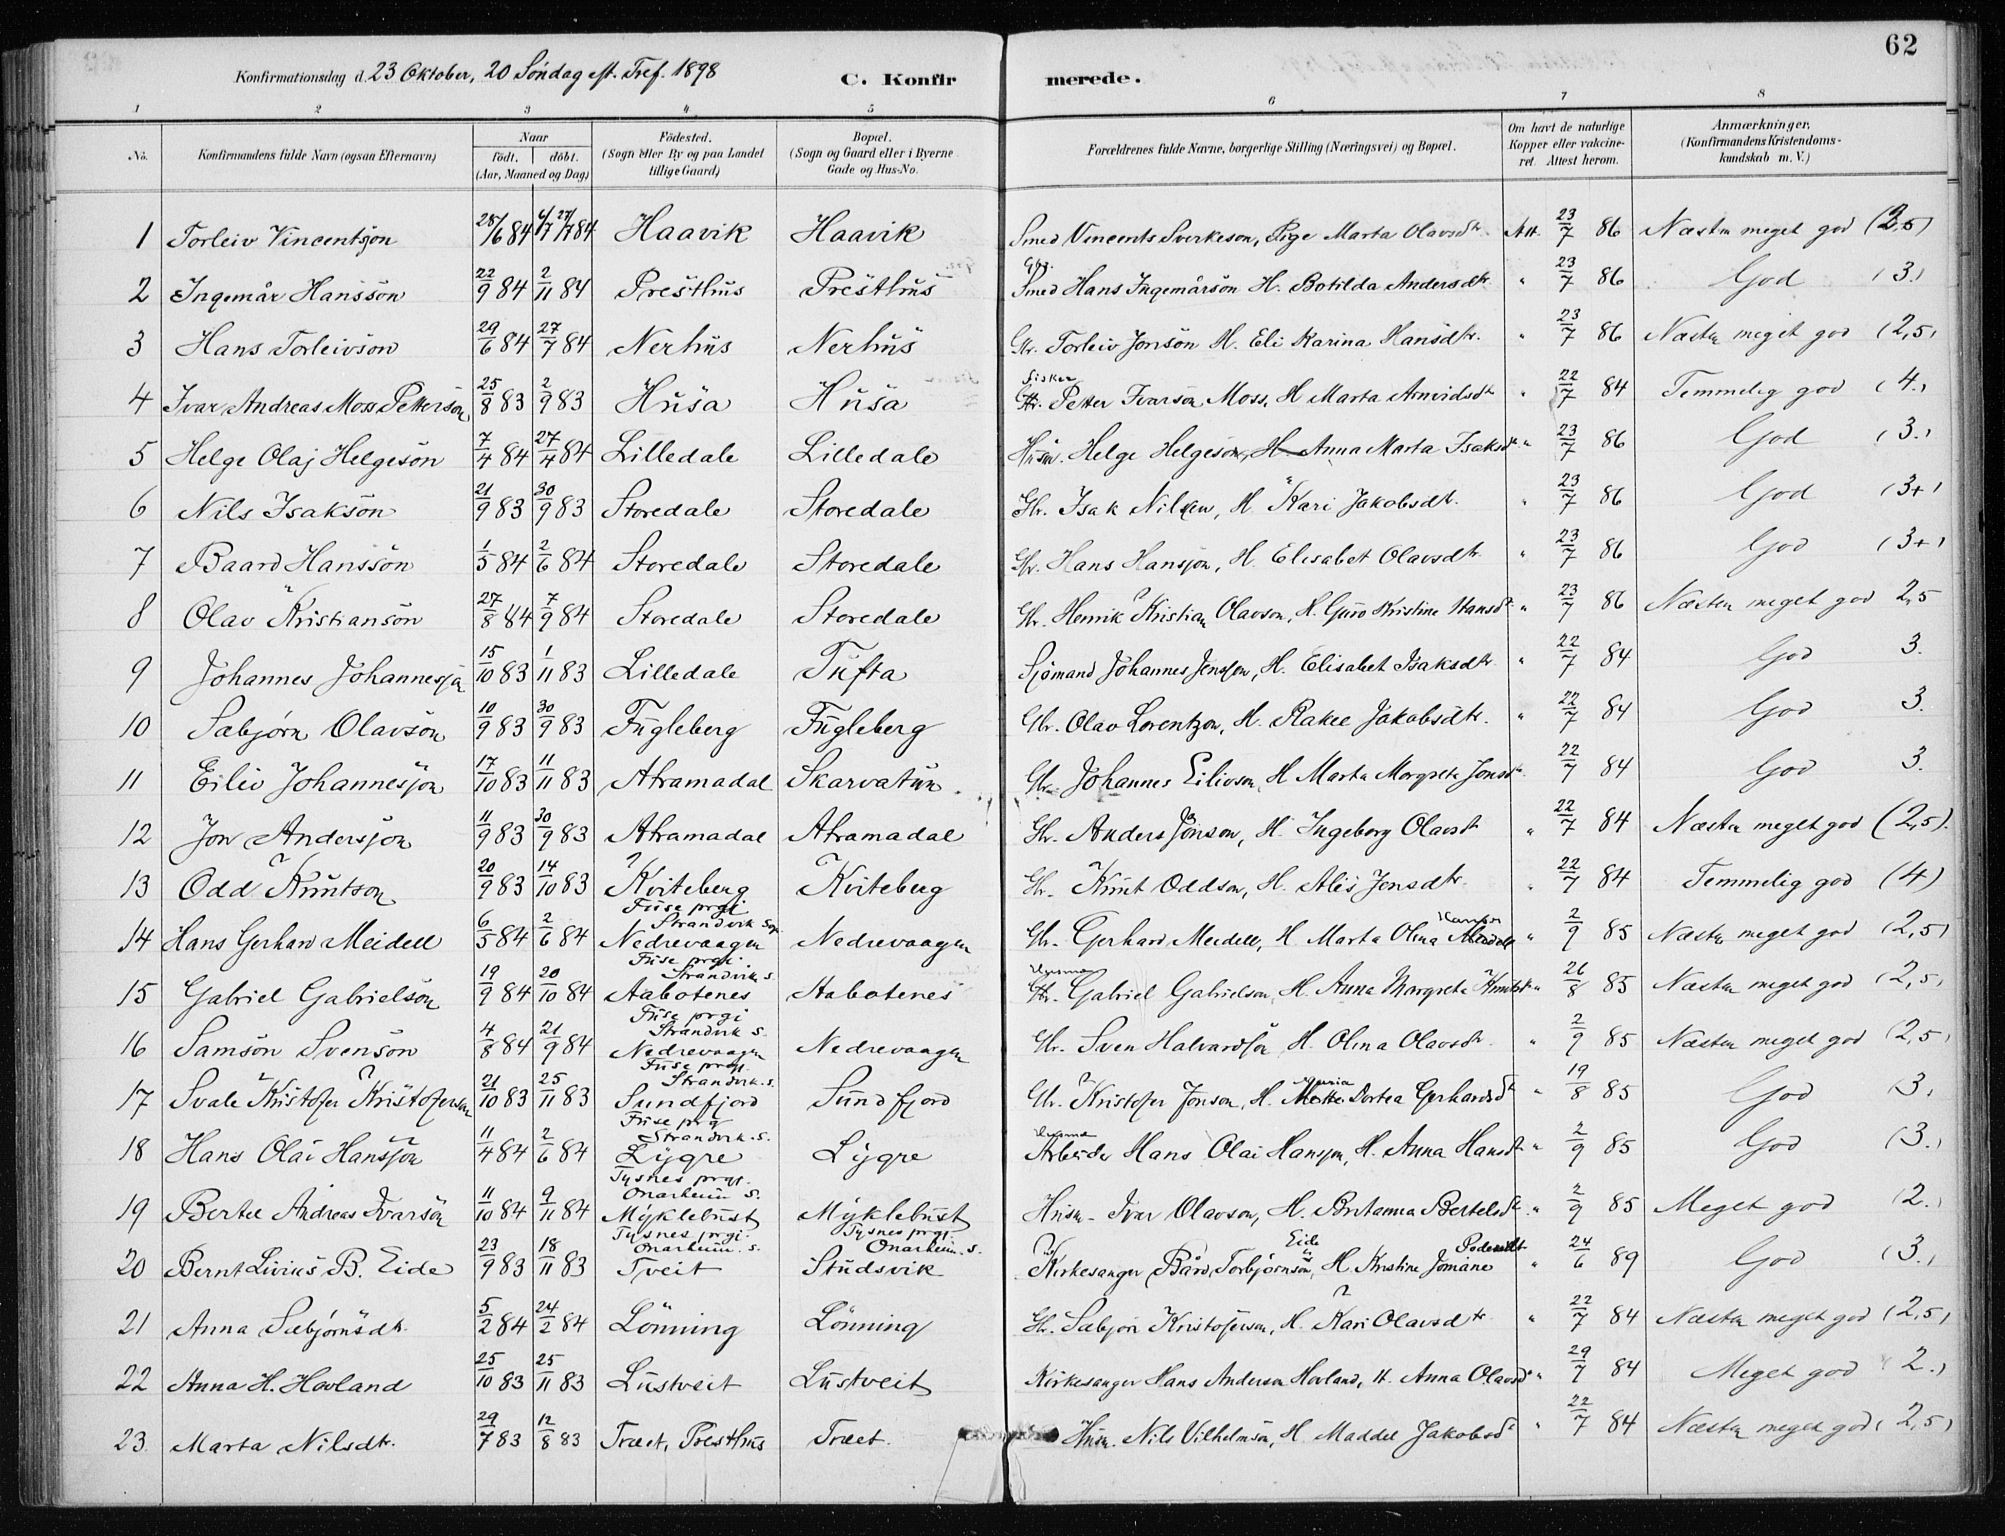 62
Konfirmationsdag d. 23 Oktober, 20 Söndag eft. Tref. 1898
C. Konfirmerede.
1 2 3 4 5 6 7 8
No. Konfirmandens fulde Navn (ogsaa Efternavn) Naar födt. döbt. (Aar, Maaned og Dag) Födested. (Sogn eller By og paa Landet tillige Gaard) Bopæl. (Sogn og Gaard eller i Byerne Gade og Hus-No. Forældrenes fulde Navne, borgerlige Stilling (Næringsvei) og Bopæl. Om havt de naturlige Kopper eller vakcineret. Attest herom. Anmærkninger. (Konfirmandens Kristendomskundskab m. V.)
1 Torleiv Vincentson 28/6 84 27/7 84 Haavik Haavik Smed Vincents Sverkeson, Pige Marta Olavsdtr. Att. 23/7 86 Næsten meget god (2,5)
2 Ingemår Hansson 22/9 84 2/11 84 Presthus Presthus Gbr. Smed Hans Ingemårson H. Botilda Andersdtr. " 23/7 86 God (3)
3 Hans Torleivson 29/6 84 27/7 84 Nerhus Nerhus Gbr. Torleiv Jonsön H. Eli Karina Hansdtr. " 23/7 86 Næsten meget god (2,5)
4 Ivar Andreas Moss Petterson 25/8 83 2/9 83 Husa Husa Fisker Gbr. Petter Ivarson Moss, H Marta Arnvidsdtr " 22/7 84 Temmelig god (4.)
5 Helge Olaj Helgesön 7/4 84 27/4 84 Lilledale Lilledale Husm. Helge Helgeson, H Anna Marta Isaksdtr " 23/7 86 God (3.)
6 Nils Isaksön 21/9 83 30/9 83 Storedale Storedale Gbr. Isak Nilsen, H Kari Jakobsdt. " 23/7 86 God (3+)
7 Baard Hansson 1/5 84 2/6 84 Storedale Storedale Gbr. Hans Hansson, H. Elisabet Olavsdtr. " 23/7 86 God (3+)
8 Olav Kristiansön 27/8 84 7/9 84 Storedale Storedale Gbr. Henrik Kristian Olavson, H. Guro Kristine Hansdtr " 23/7 86 Næsten meget god 2,5
9 Johannes Johannesson 15/10 83 1/11 83 Lilledale Tufta Sjömand Johannes Jensson, H. Elisabet Isaksdtr. " 22/7 84 God 3.
10 Sæbjörn Olavsön 10/9 83 30/9 83 Fugleberg Fugleberg Gbr. Olav Lorentzon, H. Rakel Jakobsdtr. " 22/7 84 God 3.
11 Eiliv Johannesson 17/10 83 11/11 83 Atramadal Skarvatun Gbr. Johannes Eilivson, H Marta Margreta Jonsdtr " 22/7 84 God 3.
12 Jon Andersson 11/9 83 30/9 83 Atramadal Atramadal Gbr. Anders Jönson, H. Ingeborg Olavsdt " 22/7 84 Næsten meget god (2,5).
13 Odd Knutson 20/9 83 14/10 83 Kviteberg Kviteberg Gbr. Knut Oddson, H. Alis Jonsdtr. " 22/7 84 Temmelig god (4)
14 Hans Gerhard Meidell 6/5 84 2/6 84 Fuse prgj Strandvik sogn Nedrevaagen Nedrevaagen Gbr. Gerhard Meidell, H Marta Olina " 2/9 85 Næsten meget god (2,5)
15 Gabriel Gabrielsön 19/9 84 20/10 84 Fuse prgj. Strandvik s. Aabotenes Aabotenes Husma Gbr. Gabriel Gabrielson, H. Anna Margreta Knutsdt " 26/8 85 Næsten meget god (2,5)
16 Samson Svenson 4/8 84 21/9 84 Fuse prgj Strandvik s. Nedrevaagen Nedrevaagen Gbr. Sven Halvardson, H. Olina Olavsdtr. " 2/9 85 Næsten meget god (2,5)
17 Svale Kristofer Kristoferson 21/10 83 25/11 83 Fuse prgj. Strandvik. s. Sundfjord Sundfjord Gbr. Kristofer Jonson, H. Maria Mette Dortea Gerhardsdt " 19/8 85 God (3)
18 Hans Olai Hansson 11/4 84 2/6 84 Fuse prg Strandvik. s. Lygre Lygre Husma Arbeider Hans Olai Hanson, H. Anna Hansdt " 2/9 85 God (3.)
19 Bertel Andreas Ivarsön 11/10 84 9/11 84 Tysnes prgj. Onarheim s. Myklebust Myklebust Husm. Ivar Olavson, H. Britanna Bertelsdtr. " 2/9 85 Meget god (2.)
20 Bernt Livius B. Eide 23/9 83 18/11 83 Tysnes prgj. Onarheim. s. Tveit Tysnes prgj. Onarheim. s. Studsvik Kirkesanger Bård Torbjørnson Eide, H Kristine Jomane Pedersdt " 24/6 89 God (3.)
21 Anna Sæbjørnsdt. 5/2 84 24/2 84 Lönning Lönning Gbr. Sæbjörn Kristoferson, H. Kari Olavsdtr " 22/7 84 Næsten meget god (2,5)
22 Anna H. Hovland 25/10 83 25/11 83 Lustveit Lustveit Kirkesanger Hans Anderson Hovland, H. Anna Olavsdtr " 29/7 84 Meget god (2.)
23. Marta Nilsdtr. 29/7 83 12/8 83 Træet, Presthus Træet. Husm. Nils Vilhelmsön, H Maddel Jakobsdt " 22/7 84 Næsten meget god (2,5)